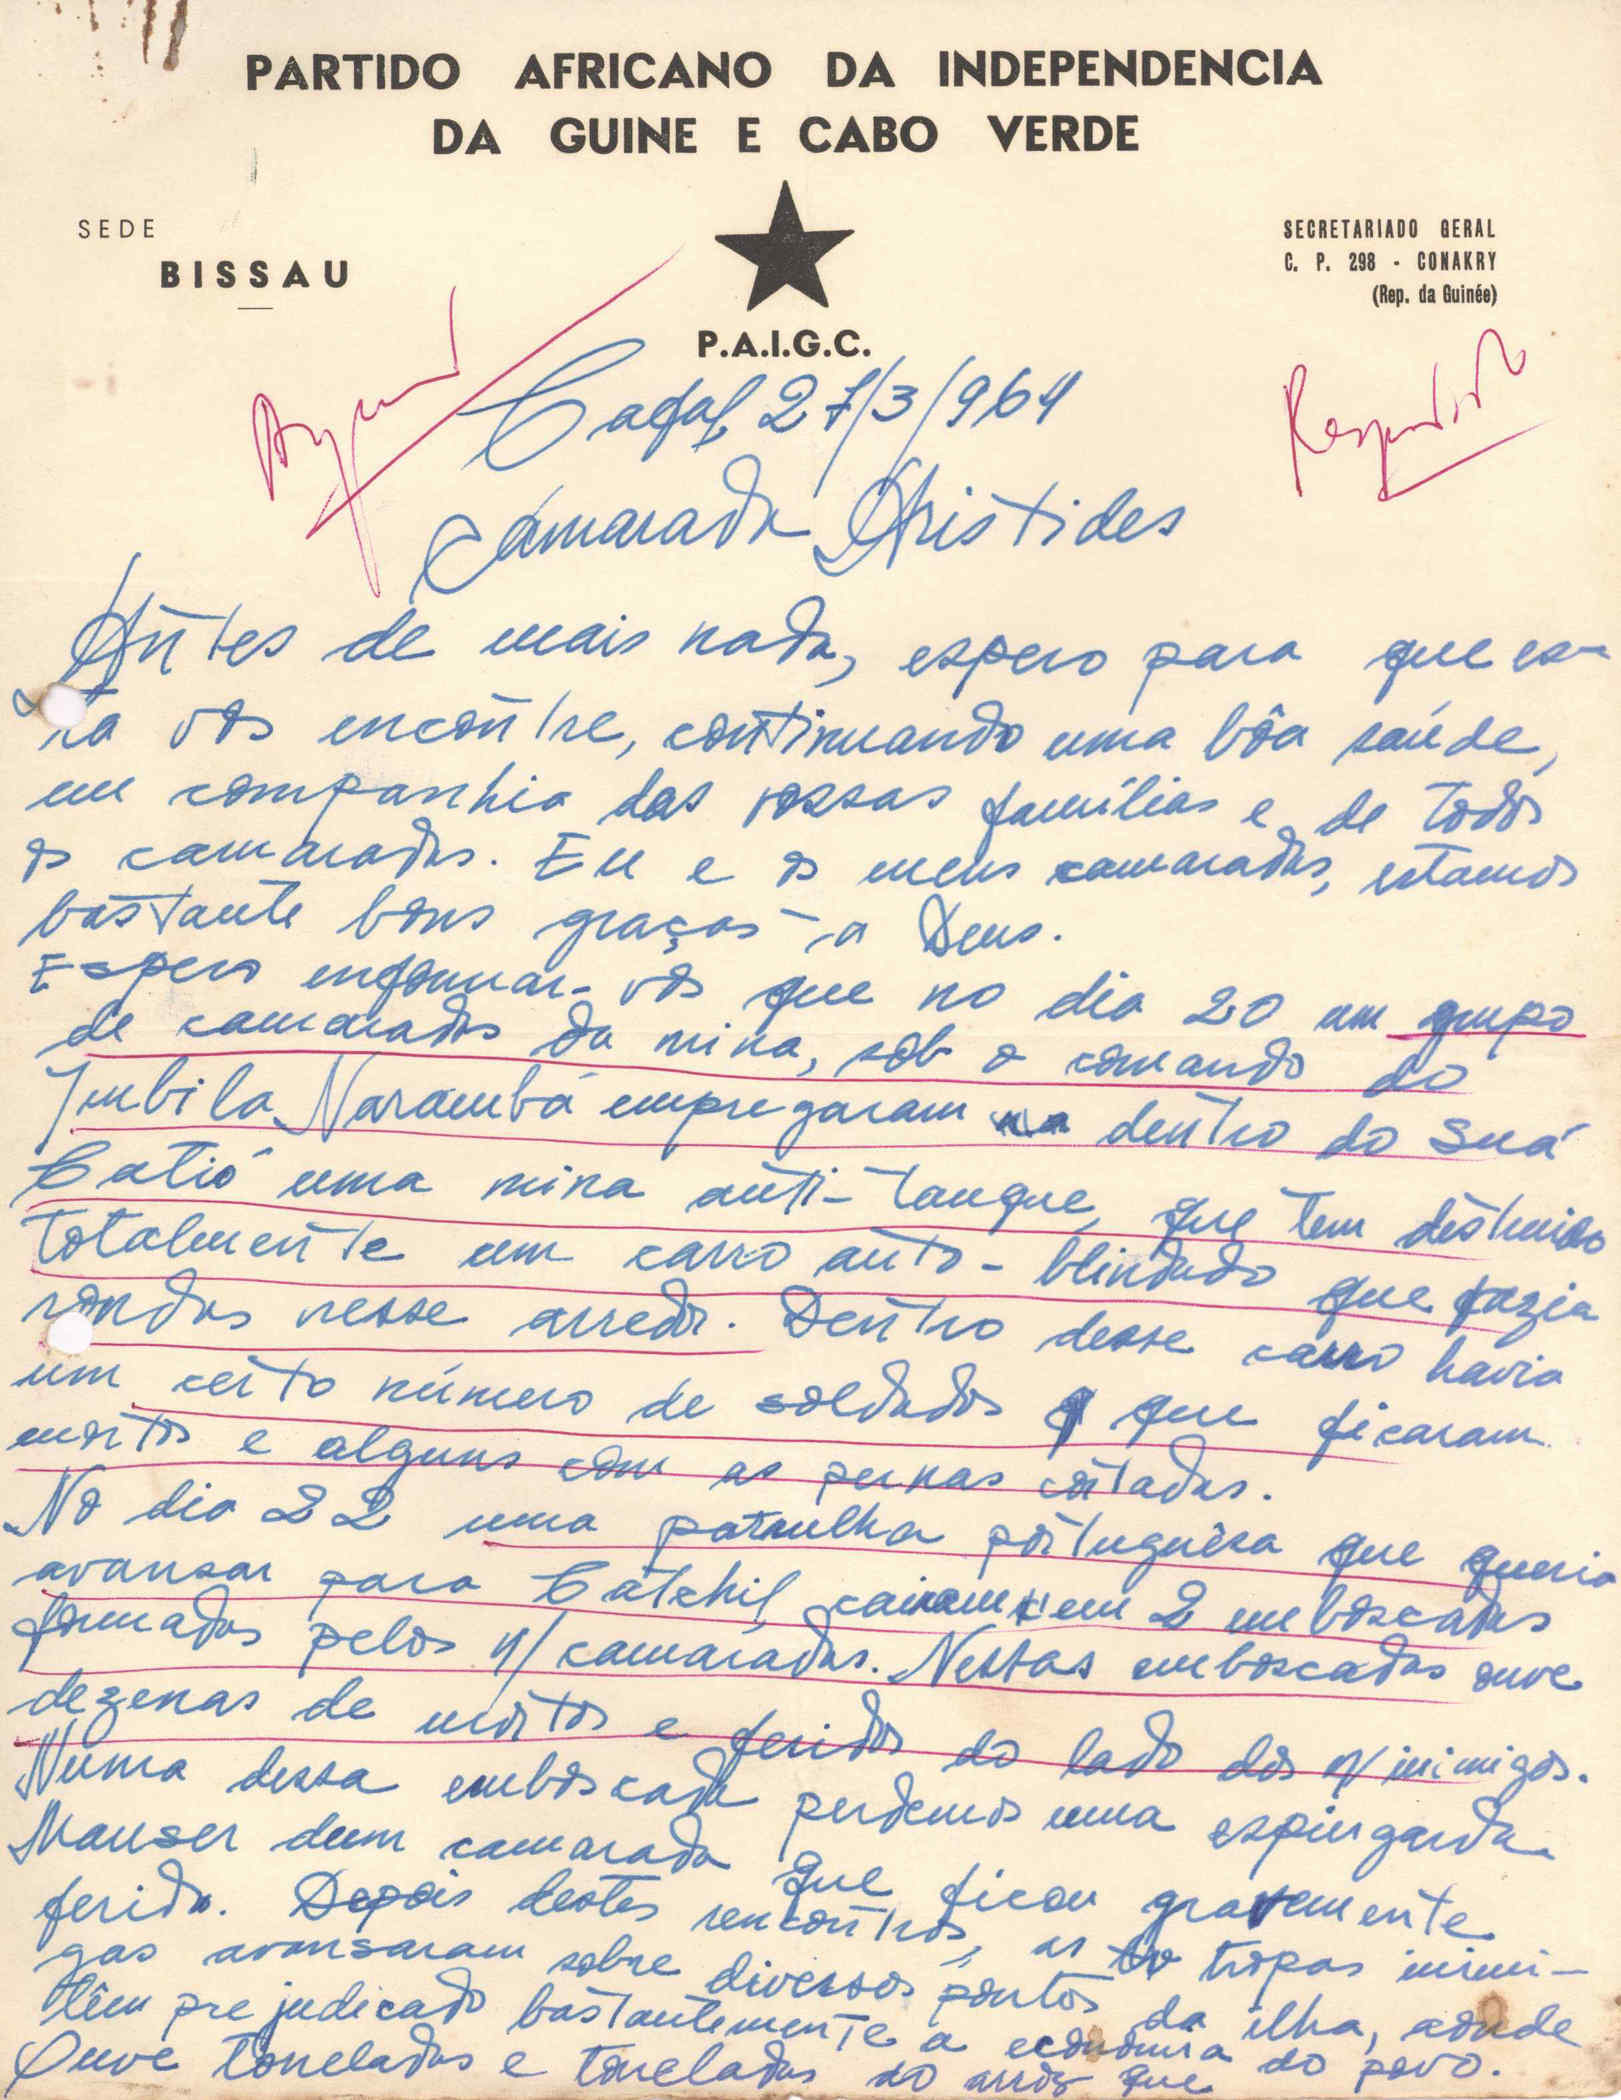 PARTIDO AFRICANO DA INDEPENDENCIA
DA GUINE E CABO VERDE
SEDE
BISSAU
SECRETARIADO GERAL
C. P. 298 - CONAKRY
(Rep. da Guinée)
P.A.I.G.C.
Respondido
Cafal 27/3/964
Camarada Aristides
Antes de mais nada, espero para que es-
ta vos encontre, continuando uma bôa saúde,
em companhia das vossas famílias e de todos
os camaradas. Eu e os meus camaradas, estamos
bastante bons graças a Deus.
Espero enformar-vos que no dia 20 um grupo
de camaradas da mina, sob o comando do
Imbila Narambá empregaram dentro do Suá
Catió uma mina anti-tanque, que tem destruido
totalmente um carro auto-blindado que fazia
rondas nesse arredor. Dentro desse carro havia
um certo número de soldados que ficaram
mortos e alguns com as pernas cortadas.
No dia 22 uma patrulha portuguêsa que queria
avansar para Catchil, cairam em 2 emboscadas
formadas pelos n/ camaradas. Nestas emboscadas ouve
dezenas de mortos e feridos do lado dos n/ inimigos.
Numa dessa emboscada perdemos uma espingarda
Mauser dum camarada que ficou gravemente
ferido. Depois destes rencontros, as tropas inimi-
gas avansaram sobre diversos pontos da ilha, aonde
têm prejudicado bastantemente a economia do povo.
Ouve toneladas e toneladas do arroz que